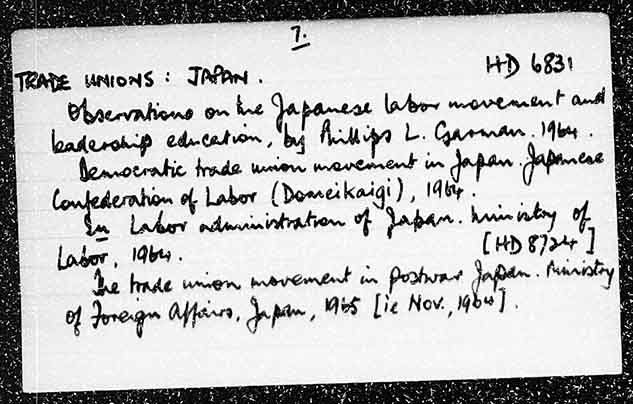 7.
TRADE UNIONS: JAPAN. HD 6831
Observations on the Japanese labor movement and
leadership education, by Phillips L. Garman. 1964.
Democratic trade union movement in Japan. Japanese
Confederation of Labor (Domeikaigi), 1964.
In Labor administration of Japan. Ministry of
Labor, 1964. [HD 8724]
The trade union movement in postwar Japan. Ministry
of Foreign Affairs, Japan, 1965 [ie Nov., 1964].